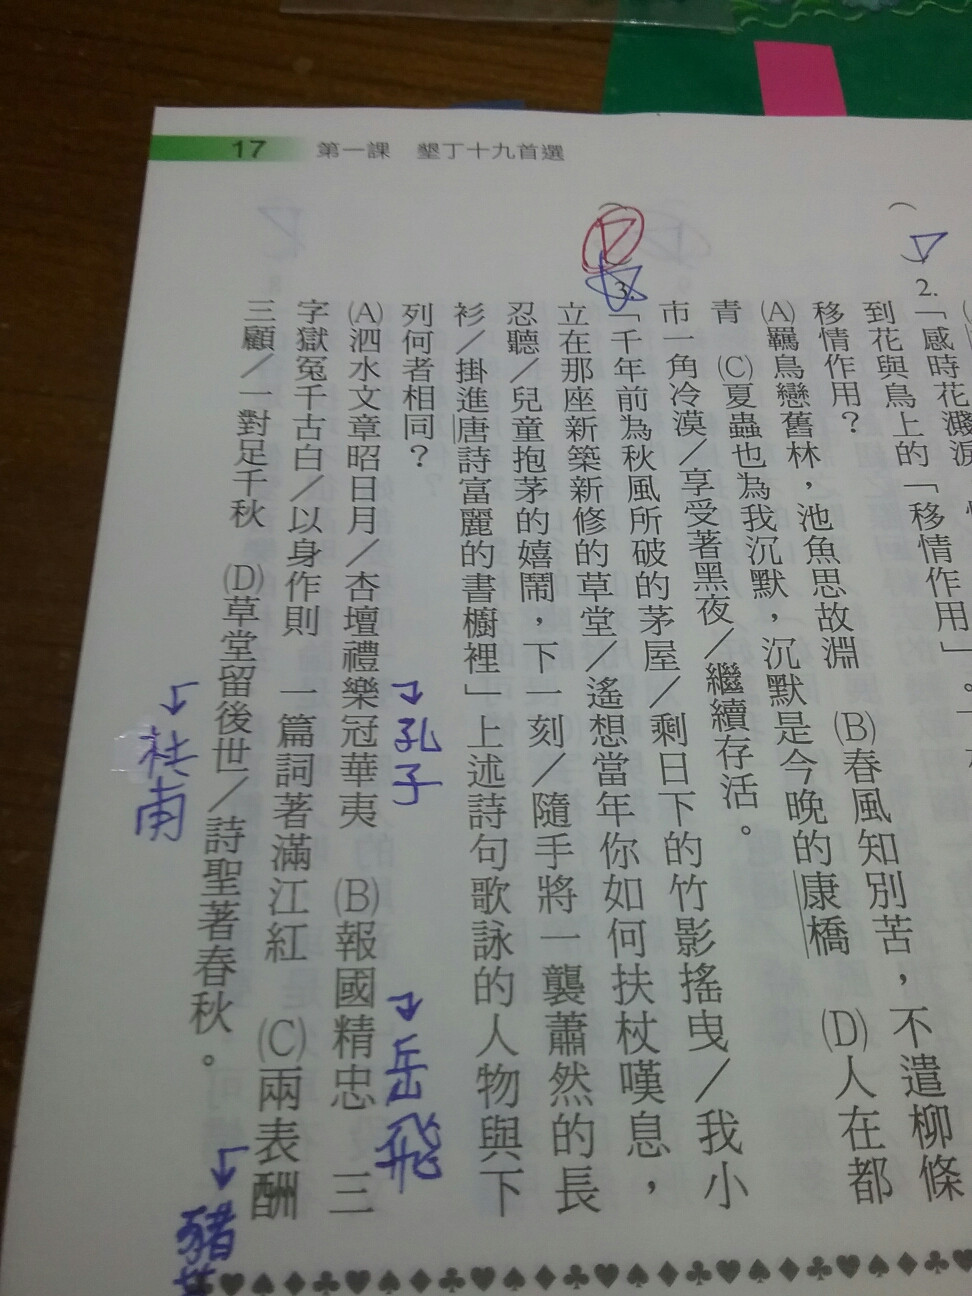 17 第一課 墾丁十九首選
2.「感時花濺淚
到花與鳥上的「移情作用」。
移情作用？
(A)羈鳥戀舊林，池魚思故淵 (B)春風知別苦，不遣柳條
青 (C)夏蟲也為我沉默，沉默是今晚的康橋 (D)人在都
市一角冷漠／享受著黑夜／繼續存活。
3.「千年前為秋風所破的茅屋／剩日下的竹影搖曳／我小
立在那座新築新修的草堂／遙想當年你如何扶杖嘆息，
忍聽／兒童抱茅的嬉鬧，下一刻／隨手將一襲蕭然的長
衫／掛進唐詩富麗的書櫥裡」上述詩句歌詠的人物與下
列何者相同？
(A)泗水文章昭日月／杏壇禮樂冠華夷 (B)報國精忠 三
字獄冤千古白／以身作則 一篇詞著滿江紅 (C)兩表酬
三顧／一對足千秋 (D)草堂留後世／詩聖著春秋。
孔子
岳飛
杜甫